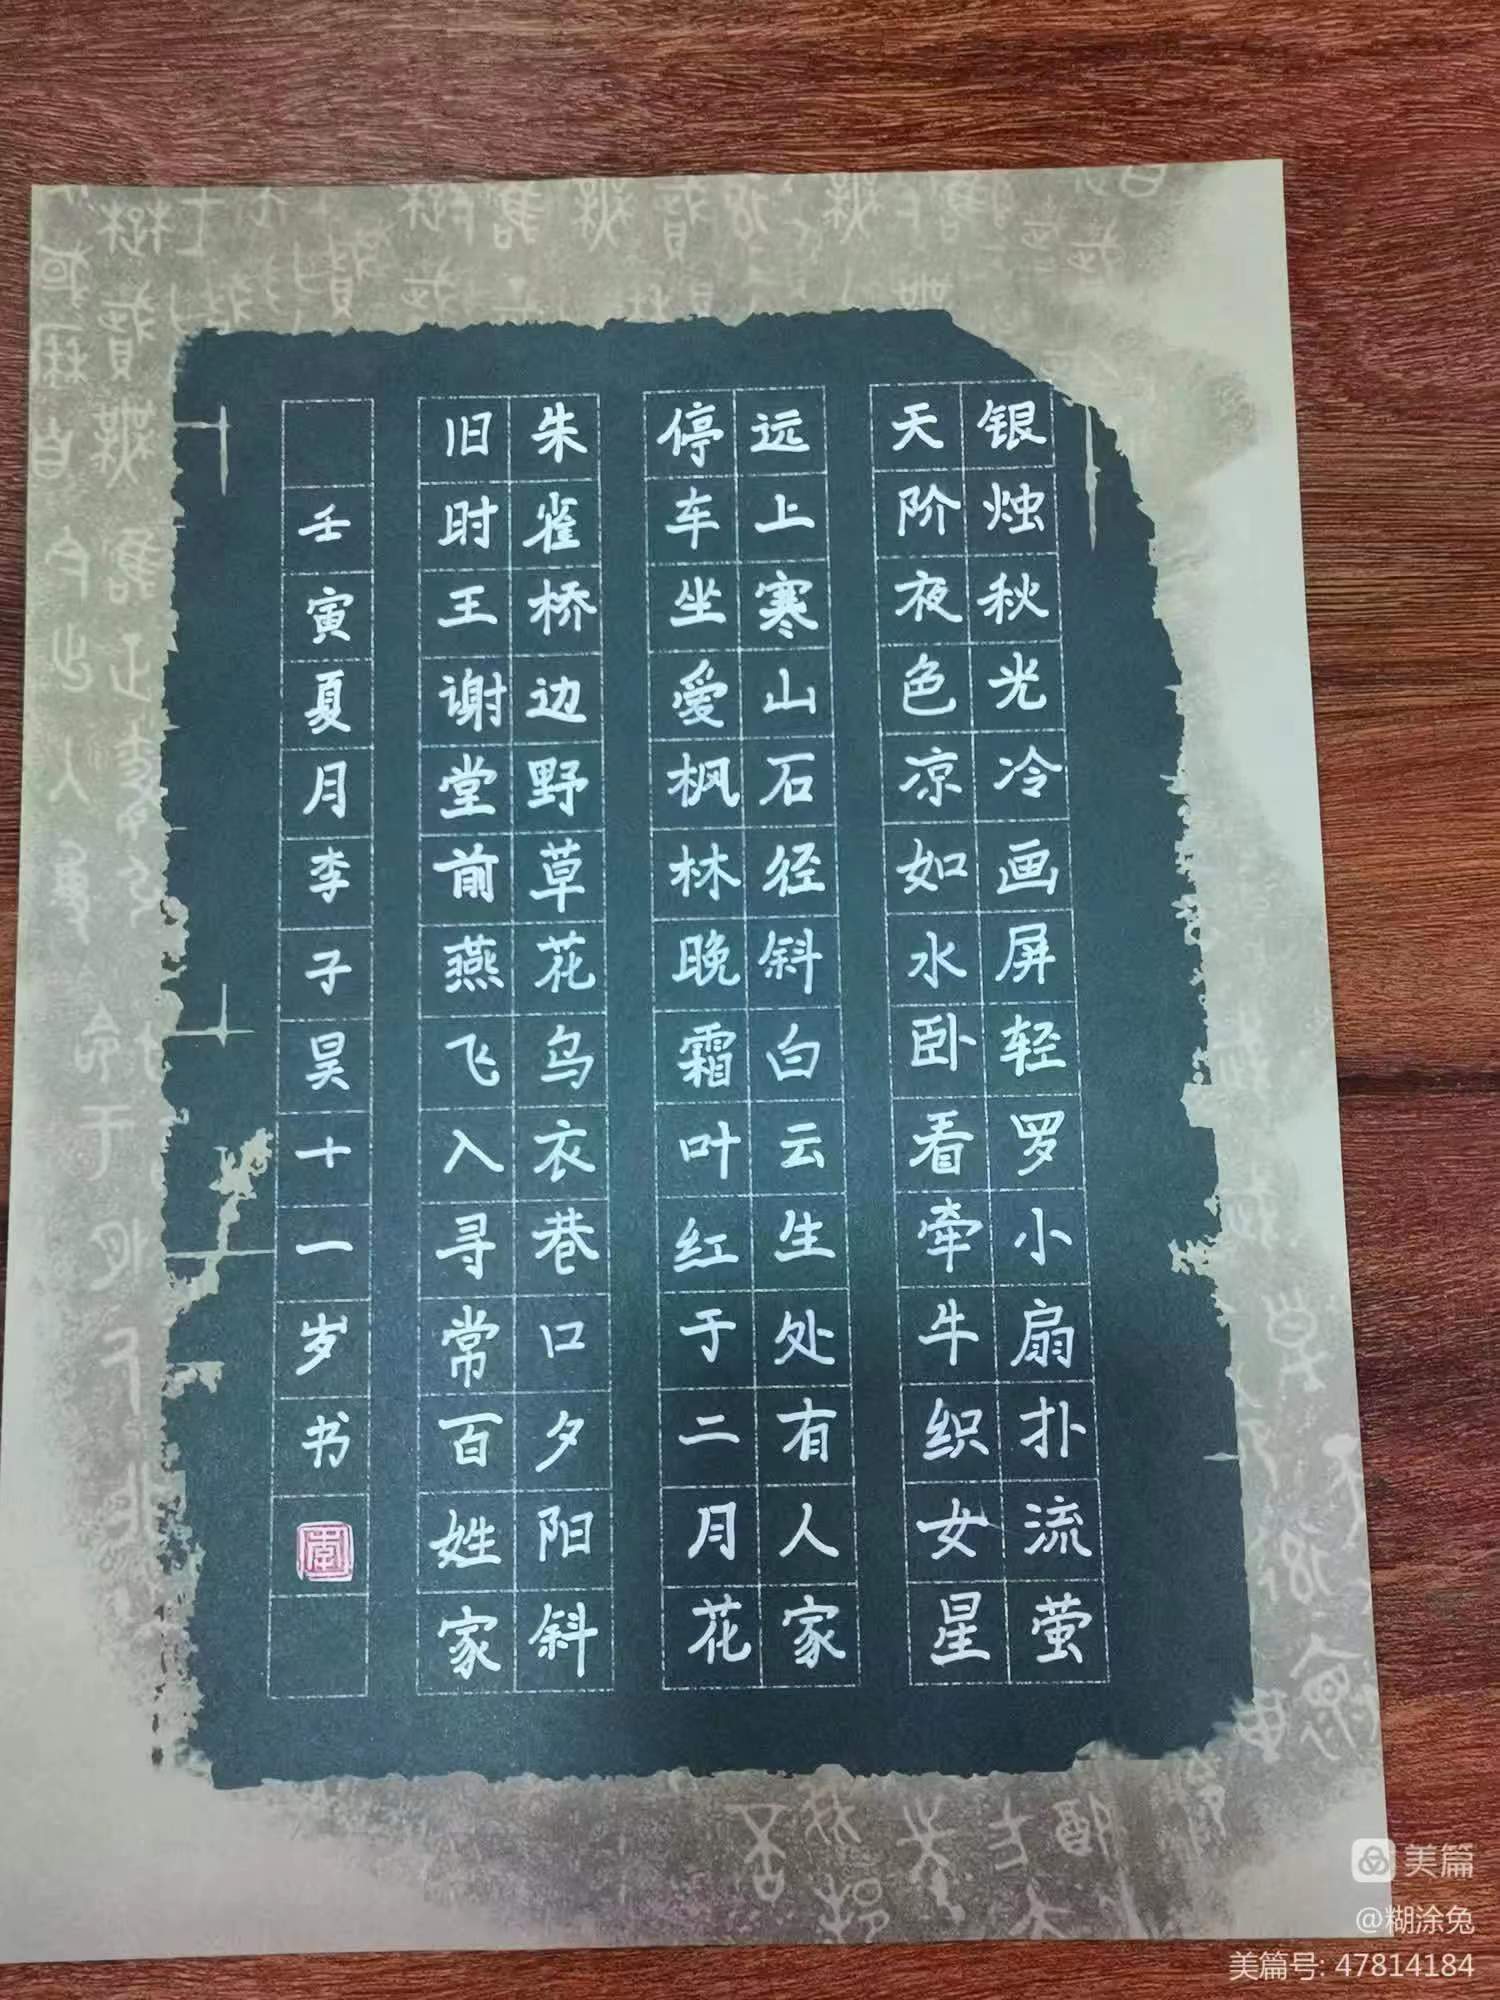 银烛秋光冷画屏轻罗小扇扑流萤
天阶夜色凉如水卧看牵牛织女星
远上寒山石径斜白云生处有人家
停车坐爱枫林晚霜叶红于二月花
朱雀桥边野草花乌衣巷口夕阳斜
旧时王谢堂前燕飞入寻常百姓家
壬寅夏月李子昊十一岁书
美篇
@糊涂兔
美篇号: 47814184